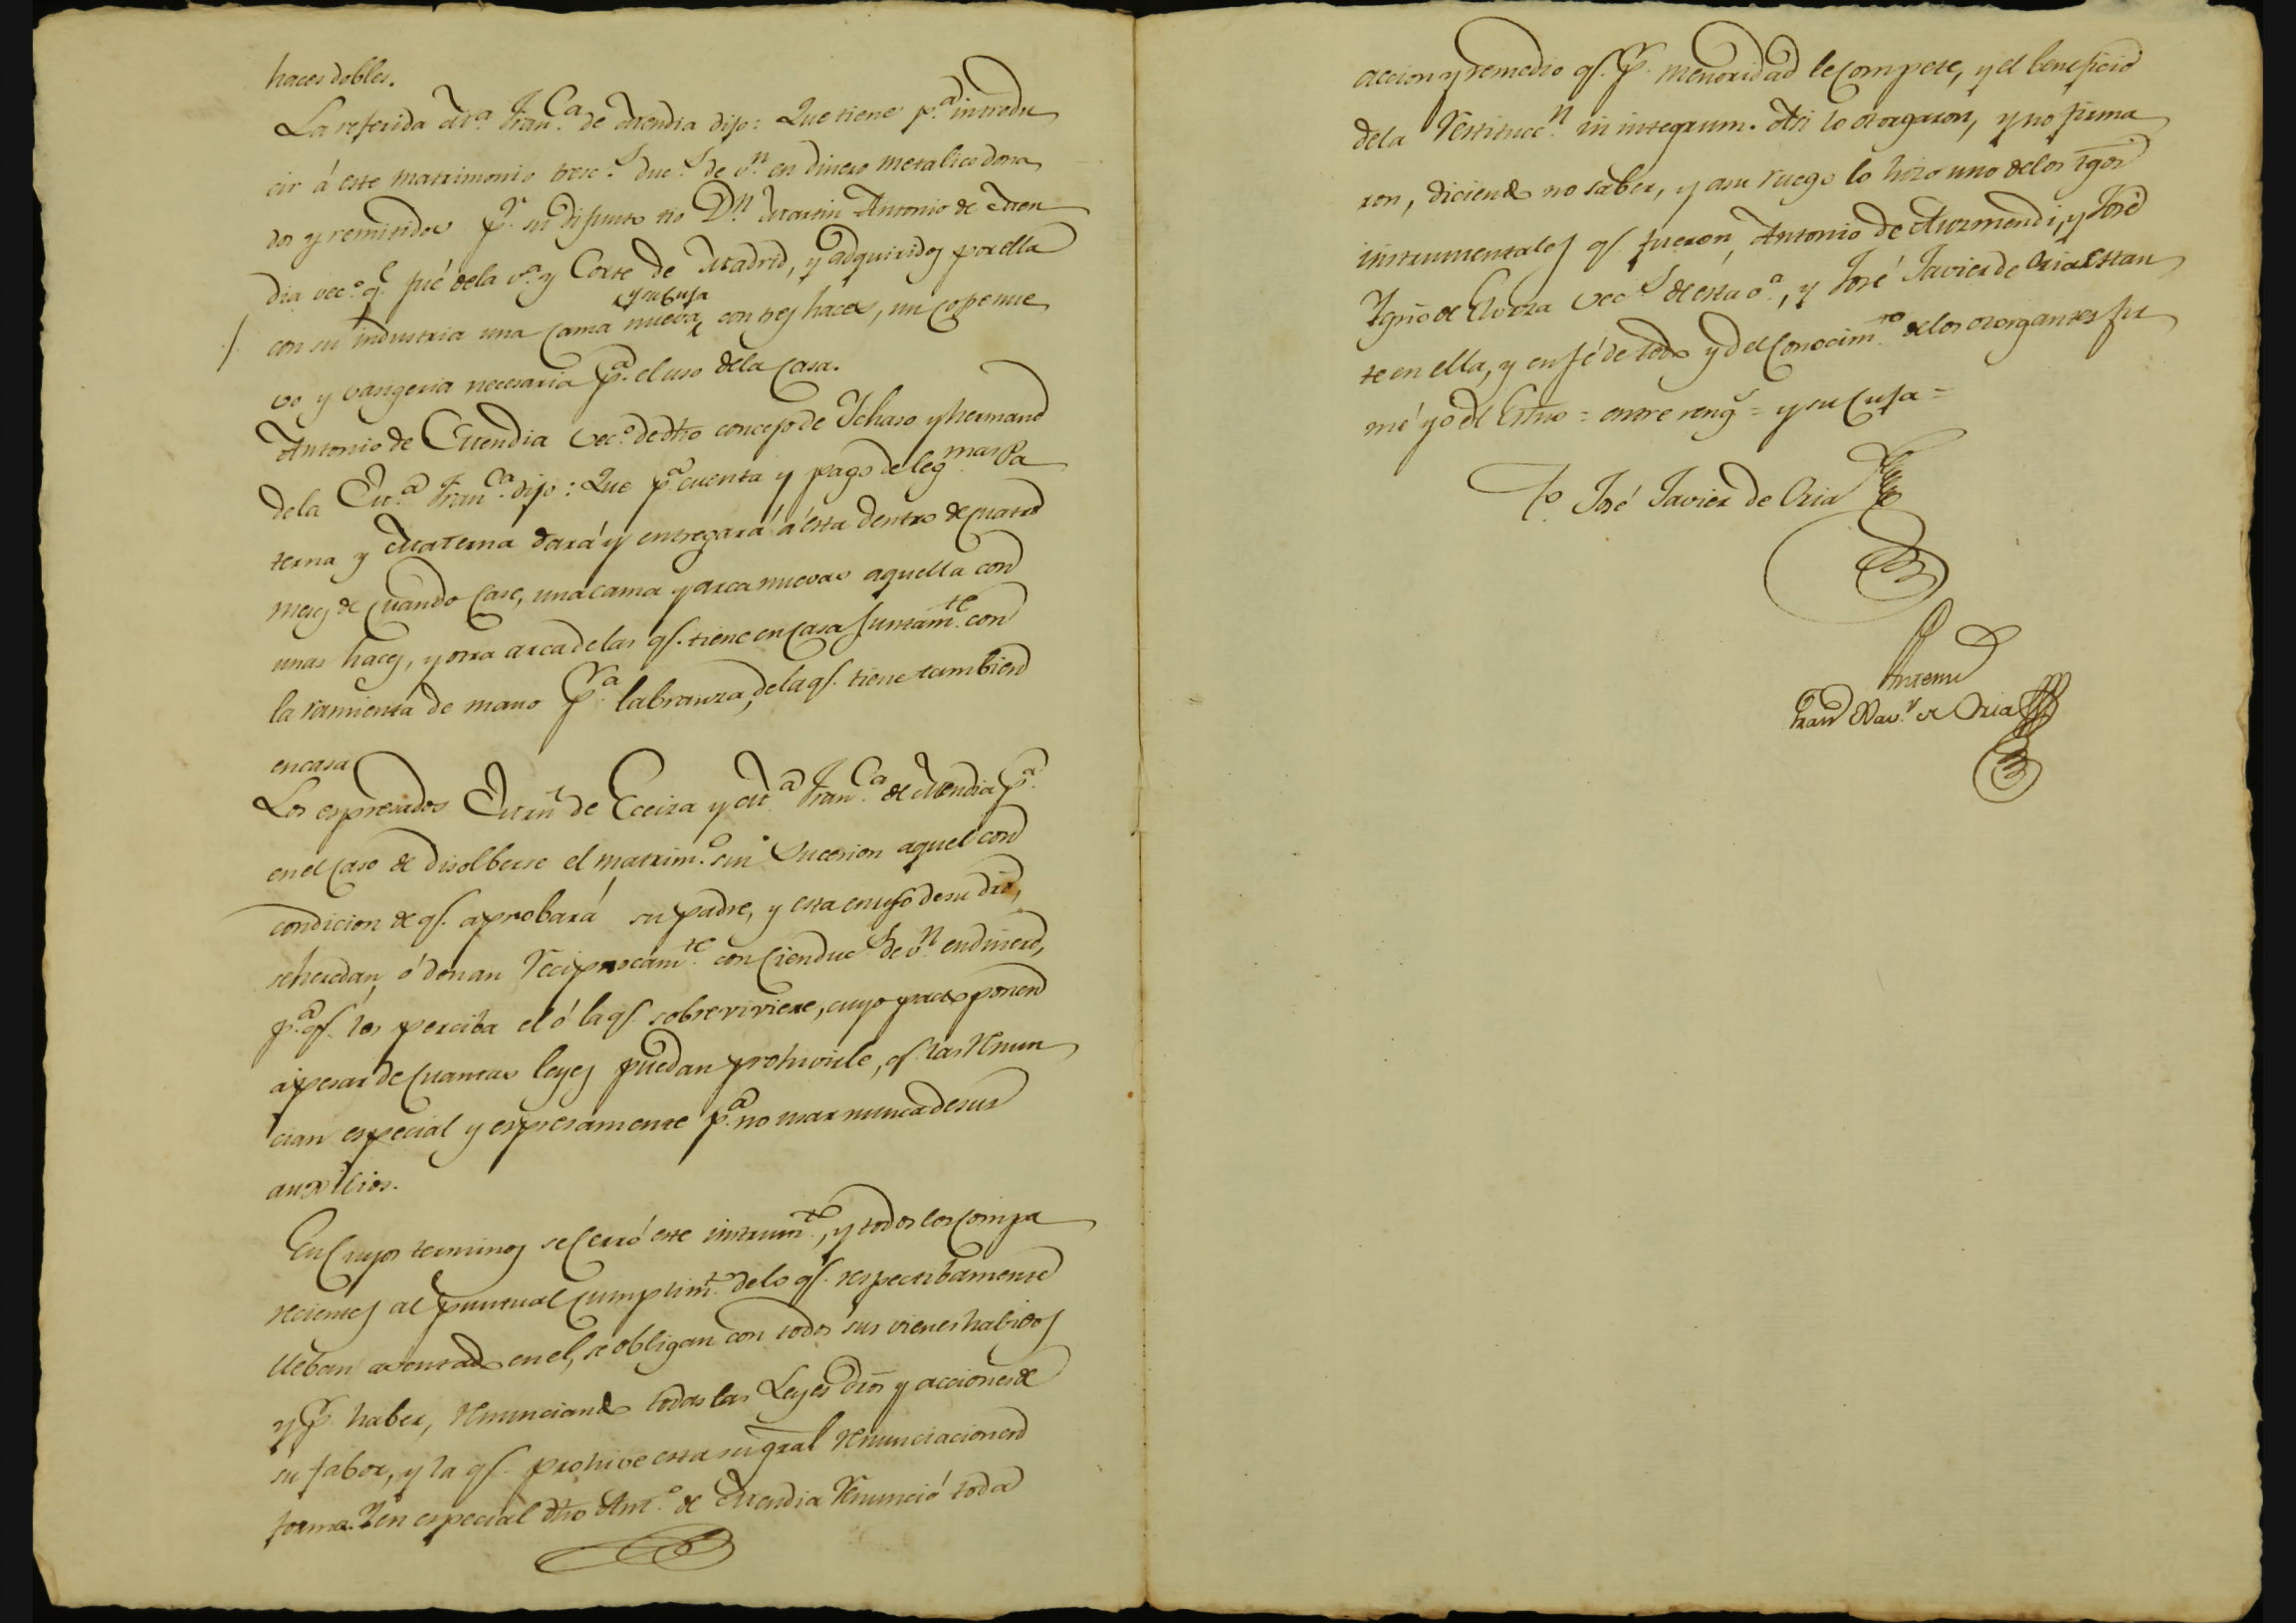 haces dobles.
La referida Mª Franca de Mendia dijo: Que tiene pª introdu
cir á este matrimonio tresc.s duc.s de v.n en dinero metalico dona
dos y remitidos pr su difunto tio Dn Martin Antonio de Men
dia vec.o q.e fué dela v.a y Corte de Madrid, y adquiridos por ella
y su Cuja
con su industria una Cama nueva, con tres haces, un cofre nue
vo y vangeria necesaria pª el uso dela Casa.
Antonio de Mendia Vec.o de dho concejo de Ichaso y hermano
dela M.a Fran.ca dijo: Que pª cuenta y pago de legmas Pa
terna y Materna dará y entregará á esta dentro de cuatro
meses de cuando Case, una cama y arca nuevas aquella con
unas haces, y otra arca delas q.e tiene en Casa juntam.te con
la ramienta de mano pª labranza, dela q.e tiene tambien
en casa
Los espresados Mrn de Eceiza y M.a Fran.ca de Mendia pª
en el Caso de disolberse el matrim.o sin Sucesion aquel con
condicion de q.e aprobará su padre, y esta en uso de su dro,
se heredan, ó donan Reciprocam.te con Cien duc.s de v.n en dinero,
p.a q.e los perciba el ó la q.e sobreviviere, cuyo pacto ponen
apesar de Cuantas leyes puedan prohivirle, q.e las Renun
cian especial y espresamente p.a no usar nunca de sus
auxilios.
En Cuyos terminos se Cerró este instrum.to, y todos los Compa
recientes al puntual Cumplim.to delo q.e respectibamente
lleban asentado en el, se obligan con todos sus vienes habidos
y pr haber, Renunciando todas las Leyes dros y acciones de
su fabor, y la q.e prohive esta su gral Renunciacion en
forma. Y en especial dho Ant.o de Mendia Renunció toda
accion y remedio q.e pr menoridad le Compete, y el beneficio
dela Restitucc.n in integrum. Asi lo otorgaron, y no firma
ron, diciendo no saber, y a su ruego lo hizo uno delos tgos
instrumentales q.e fueron, Antonio de Aurmendi, y José
Ygnº de Elorza Vec.s de esta v.a, y José Javier de Oria Estan
te en ella, y en fé de todo y del Conocim.to delos otorgantes fir
mé yo el Esno = entre reng.s = y su Cuja =
To. José Javier de Oria
Ante mi
Fran Xav.r de Oria